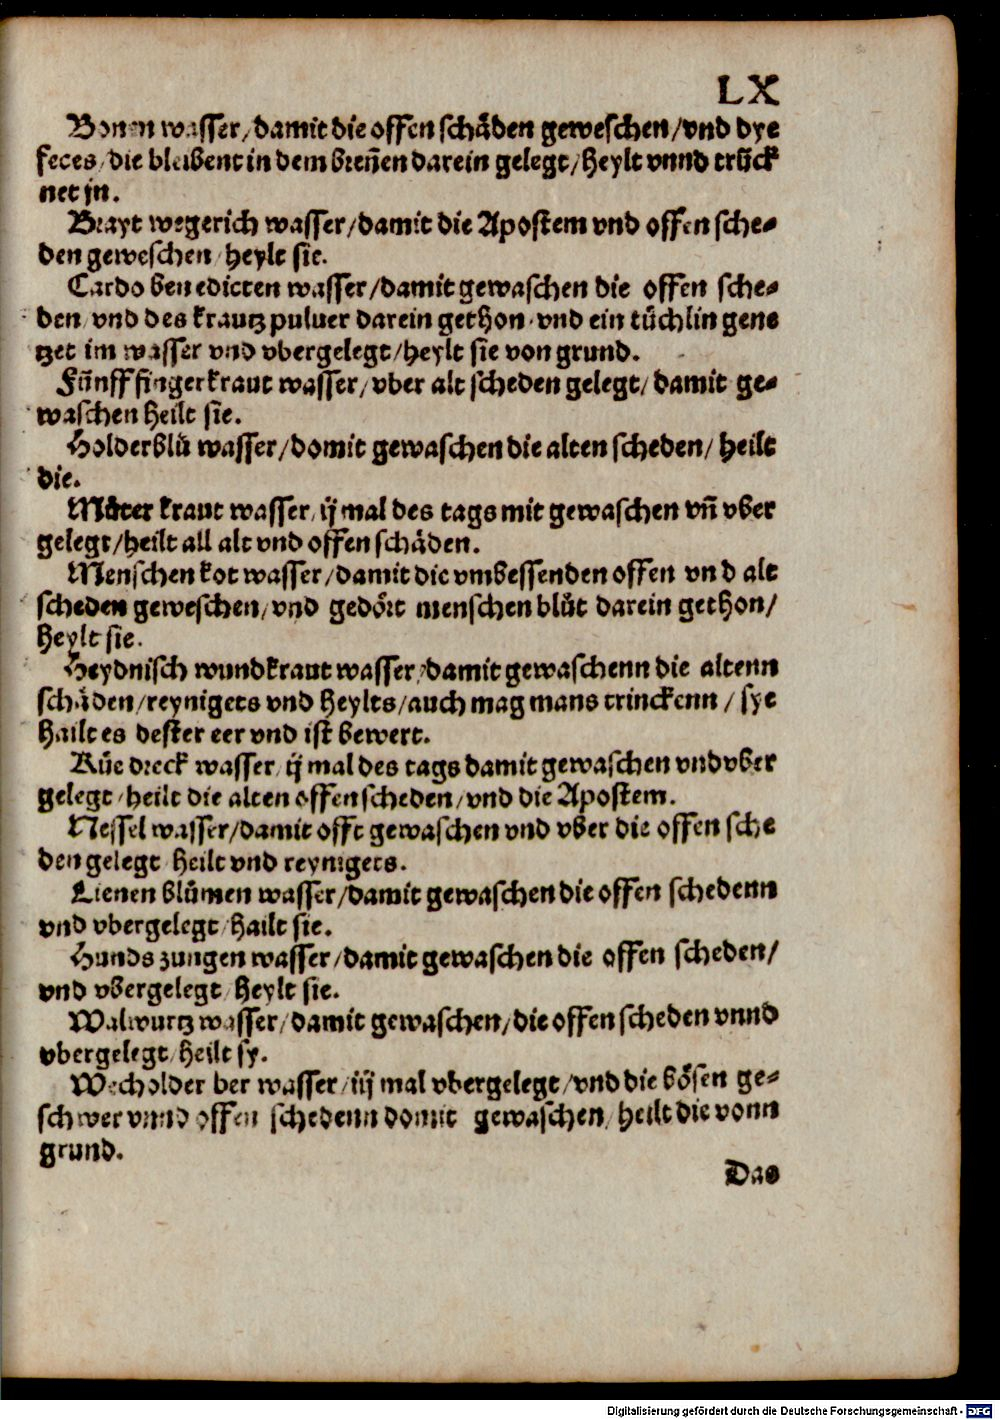 LX
Bonen wasser/damit die offen schäden geweschen/vnd dye
feces/die bleibent in dem breñen darein gelegt/heylt vnnd trück
net jn.
Brayt wegerich wasser/damit die Apostem vnd offen sche⸗
den geweschen/heylt sie.
Cardo benedicten wasser/damit gewaschen die offen sche⸗
den/vnd des krautz puluer darein gethon/vnd ein tüchlin gene
tzet im wasser vnd vbergelegt/heylt sie von grund.
Fünff fingerkraut wasser/vber alt scheden gelegt/damit ge⸗
waschen heilt sie.
Holderblů wasser/domit gewaschen die alten scheden/heilt
die.
Můter kraut wasser/ij mal des tags mit gewaschen vñ vber
gelegt/heilt all alt vnd offen schäden.
Menschen kot wasser/damit die vmbessenden offen vnd alt
scheden geweschen/vnd gedört menschen blůt darein gethon/
heylt sie.
Heydnisch wundkraut wasser/damit gewaschenn die altenn
schäden/reynigets vnd heylts/auch mag mans trinckenn/sye
hailt es dester eer vnd ist bewert.
Küe dreck wasser/ij mal des tags damit gewaschen vnd vber
gelegt/heilt die alten offen scheden/vnd die Apostem.
Nessel wasser/damit offt gewaschen vnd vber die offen sche
den gelegt/heilt vnd reynigets.
Lienen blůmen wasser/damit gewaschen die offen schedenn
vnd vbergelegt/hailt sie.
Hunds zungen wasser/damit gewaschen die offen scheden/
vnd vbergelegt/heylt sie.
Walwurtz wasser/damit gewaschen/die offen scheden vnnd
vbergelegt/heilt sy.
Wecholder ber wasser/iij mal vbergelegt/vnd die bösen ge⸗
schwer vnnd offen schedenn domit gewaschen/heilt die vonn
grund.
Das
Digitalisierung gefördert durch die Deutsche Forschungsgemeinschaft - DFG